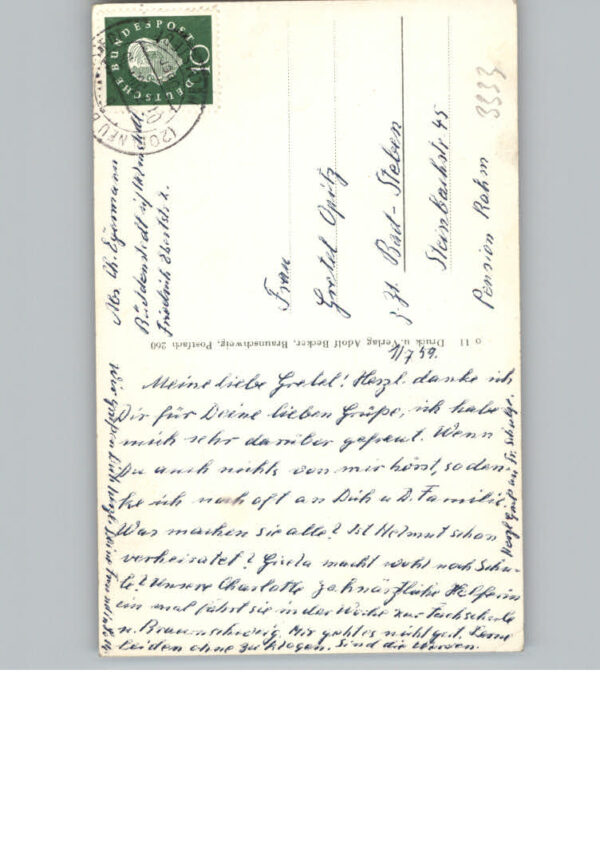 DEUTSCHE BUNDESPOST
10
3333
Abs. Ch.
Büddenstedt
Friedrich Ebertstr. 2.
Frau
Gretel Opitz
z. Zt. Bad-Steben
Steinbachstr. 45
Pension Rahm
o 11 Druck u. Verlag Adolf Becker, Braunschweig, Postfach 260
1/7 59.
Meine liebe Gretel! Herzl. danke ich
Dir für Deine lieben Grüße, ich habe
mich sehr darüber gefreut. Wenn
Du auch nichts von mir hörst, so den-
ke ich noch oft an Dich u. D. Familie.
Was machen sie alle? Ist Helmut schon
verheiratet? Gisela macht wohl noch Schu-
le? Unsere Charlotte Zahnärztliche Helferin
ein mal fährt sie in der Woche zur Fachschule
n. Braunschweig. Mir geht es nicht gut. Lerne
Leiden ohne zu klagen. Sind die Nerven.
Wir grüßen Euch herzl. Deine Freundin
Herzl. Gruß an Fr. Schulze.